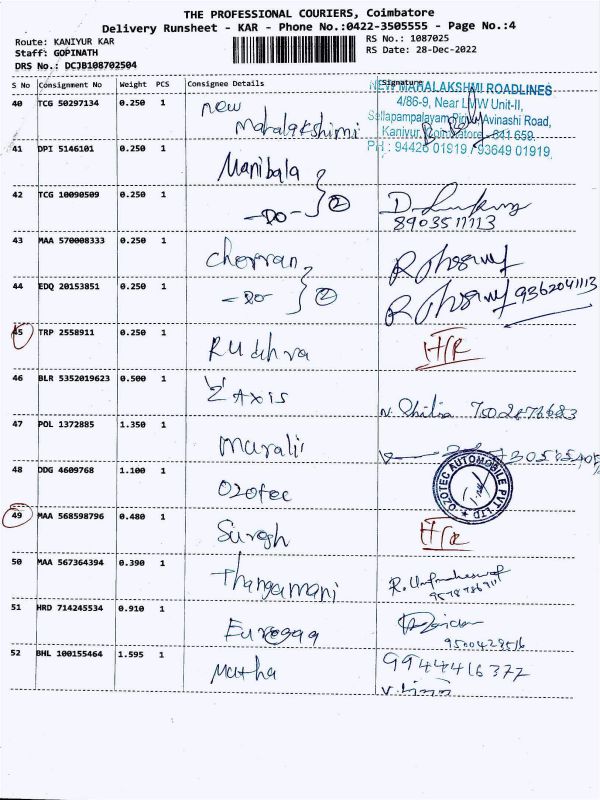 THE PROFESSIONAL COURIERS, Coimbatore
Delivery Runsheet - KAR - Phone No.:0422-3505555 - Page No.:4
Route: KANIYUR KAR
Staff: GOPINATH
DRS No.: DCJB108702504
RS No.: 1087025
RS Date: 28-Dec-2022
S No Consignment No Weight PCS Consignee Details Signature
40 TCG 50297134 0.250 1 new Mahalakshimi
NEW MAHALAKSHMI ROADLINES
4/86-9, Near LMW Unit-II,
Avinashi Road,
Kaniyur, Coimbatore - 641 659.
PH : 94426 01919 / 93649 01919
41 DPI 5146101 0.250 1 Manibala
42 TCG 10090509 0.250 1 -DO- 2
8903511113
43 MAA 570008333 0.250 1 Cherran
44 EDQ 20153851 0.250 1 -DO- 2 9362041113
45 TRP 2558911 0.250 1 RUdhra
46 BLR 5352019623 0.500 1 Z Axis
47 POL 1372885 1.350 1 murali
48 DDG 4609768 1.100 1 Ozotec
OZOTEC AUTOMOBILE PVT LTD
49 MAA 568598796 0.480 1 Suresh
50 MAA 567364394 0.390 1 Thangamani
51 HRD 714245534 0.910 1
9500428516
52 BHL 100155464 1.595 1 Matha
9944416377